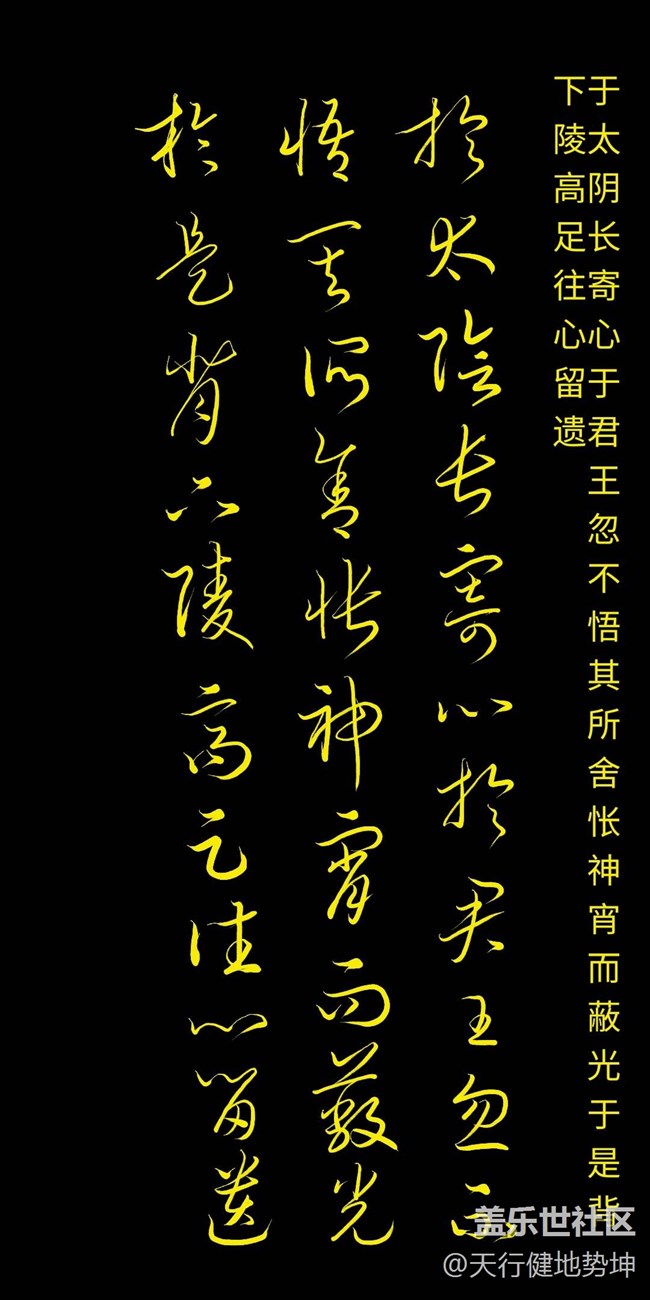 于太阴长寄心于君王忽不悟其所舍怅神宵而蔽光于是背
下陵高足往心留遗
於太陰長寄心於君王忽不
悟其所舍悵神宵而蔽光
於是背下陵高足往心留遺
盖乐世社区
@天行健地势坤